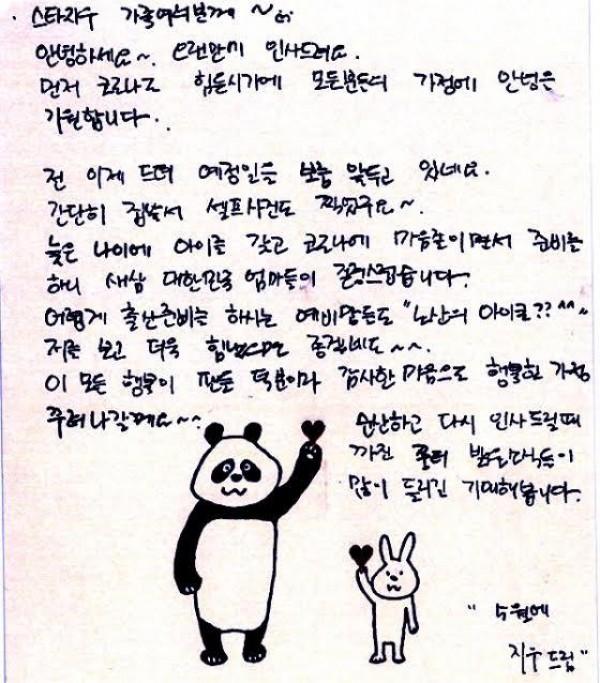 스타지우 가족여러분께 ~
안녕하세요~. 오랜만에 인사드려요.
먼저 코로나로 힘든시기에 모든분들의 가정에 안녕을
기원합니다..
전 이제 드뎌 예정일을 보름 앞두고 있네요.
간단히 집에서 셀프사진도 찍었구요~.
늦은 나이에 아이를 갖고 코로나에 마음졸이면서 준비를
하니 새삼 대한민국 엄마들이 존경스럽습니다.
어렵게 출산준비를 하시는 예비맘들도 "노산의 아이콘?? ^^~
저를 보고 더욱 힘내시면 좋겠네요~~.
이 모든 행복이 팬들 덕분이라 감사한 마음으로 행복한 가정
꾸려나갈께요~~
순산하고 다시 인사드릴때
까진 밝은 소식들이
많이 들리길 기대해봅니다.
" 5월에
지우드림"